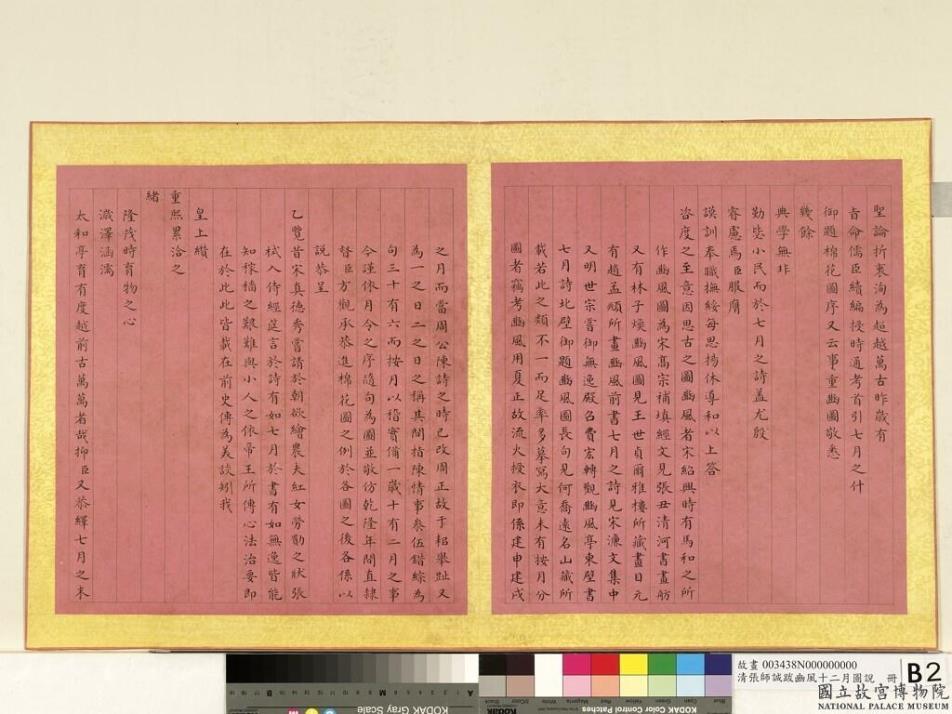 聖論折衷洵為超越萬古昨歲有
旨命儒臣續編授時通考首引七月之什
御題棉花圖序又云事重豳圖敬悉
幾餘
典學無非
勤毖小民而於七月之詩蓋尤殷
睿慮焉臣服膺
謨訓奉職撫綏每思揚休導和以上答
咨度之至意因思古之圖豳風者宋紹興時有馬和之所
作豳風圖為宋高宗補填經文見張丑清河書畫舫
又有林子煥豳風圖見王世貞爾雅樓所藏畫目元
有趙孟頫所畫豳風前書七月之詩見宋濂文集中
又明世宗嘗御無逸殿召費宏轉觀豳風亭東壁書
七月詩北壁御題豳風圖長句見何喬遠名山藏所
載若此之類不一而足率多摹寫大意未有按月分
圖者竊考豳風用夏正故流火授衣即係建申建戌
之月而當周公陳詩之時已改周正故于耜舉趾又
為一之日二之日之稱其間指陳情事叅伍錯綜為
句三十有六而按月以稽實備一歲十有二月之事
今謹依月令之序隨句為圖並敬仿乾隆年間直隸
督臣方觀承恭進棉花圖之例於各圖之後各係以
說恭呈
乙覽昔宋真德秀嘗請於朝欲繪農夫紅女勞勩之狀張
栻入侍經筵言於詩有如七月於書有如無逸皆能
知稼穡之艱難與小人之依帝王所傳心法治要即
在於此此皆載在前史傳為美談矧我
皇上纘
重熙累洽之
緒
隆茂時育物之心
濊澤涵濡
太和亭育有度越前古萬萬者哉抑臣又恭繹七月之末
故畫 003438N000000000
清張師誠跋豳風十二月圖說 冊
B2
國立故宮博物院
NATIONAL PALACE MUSEUM
KODAK Gray Scale
KODAK Color Control Patches